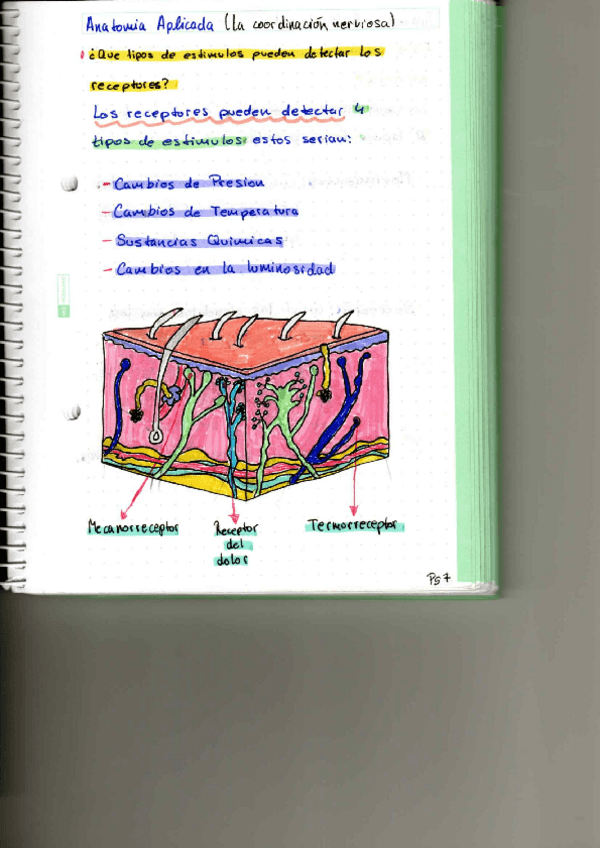 Anatomia Aplicada (La coordinación nerviosa)
¿Que tipos de estimulos pueden detectar los
receptores?
Los receptores pueden detectar 4
tipos de estimulos estos serian:
- Cambios de Presion
- Cambios de Temperatura
- Sustancias Quimicas
- Cambios en la luminosidad
Mecanorreceptor
Receptor
del
dolor
Termorreceptor
Pg 7